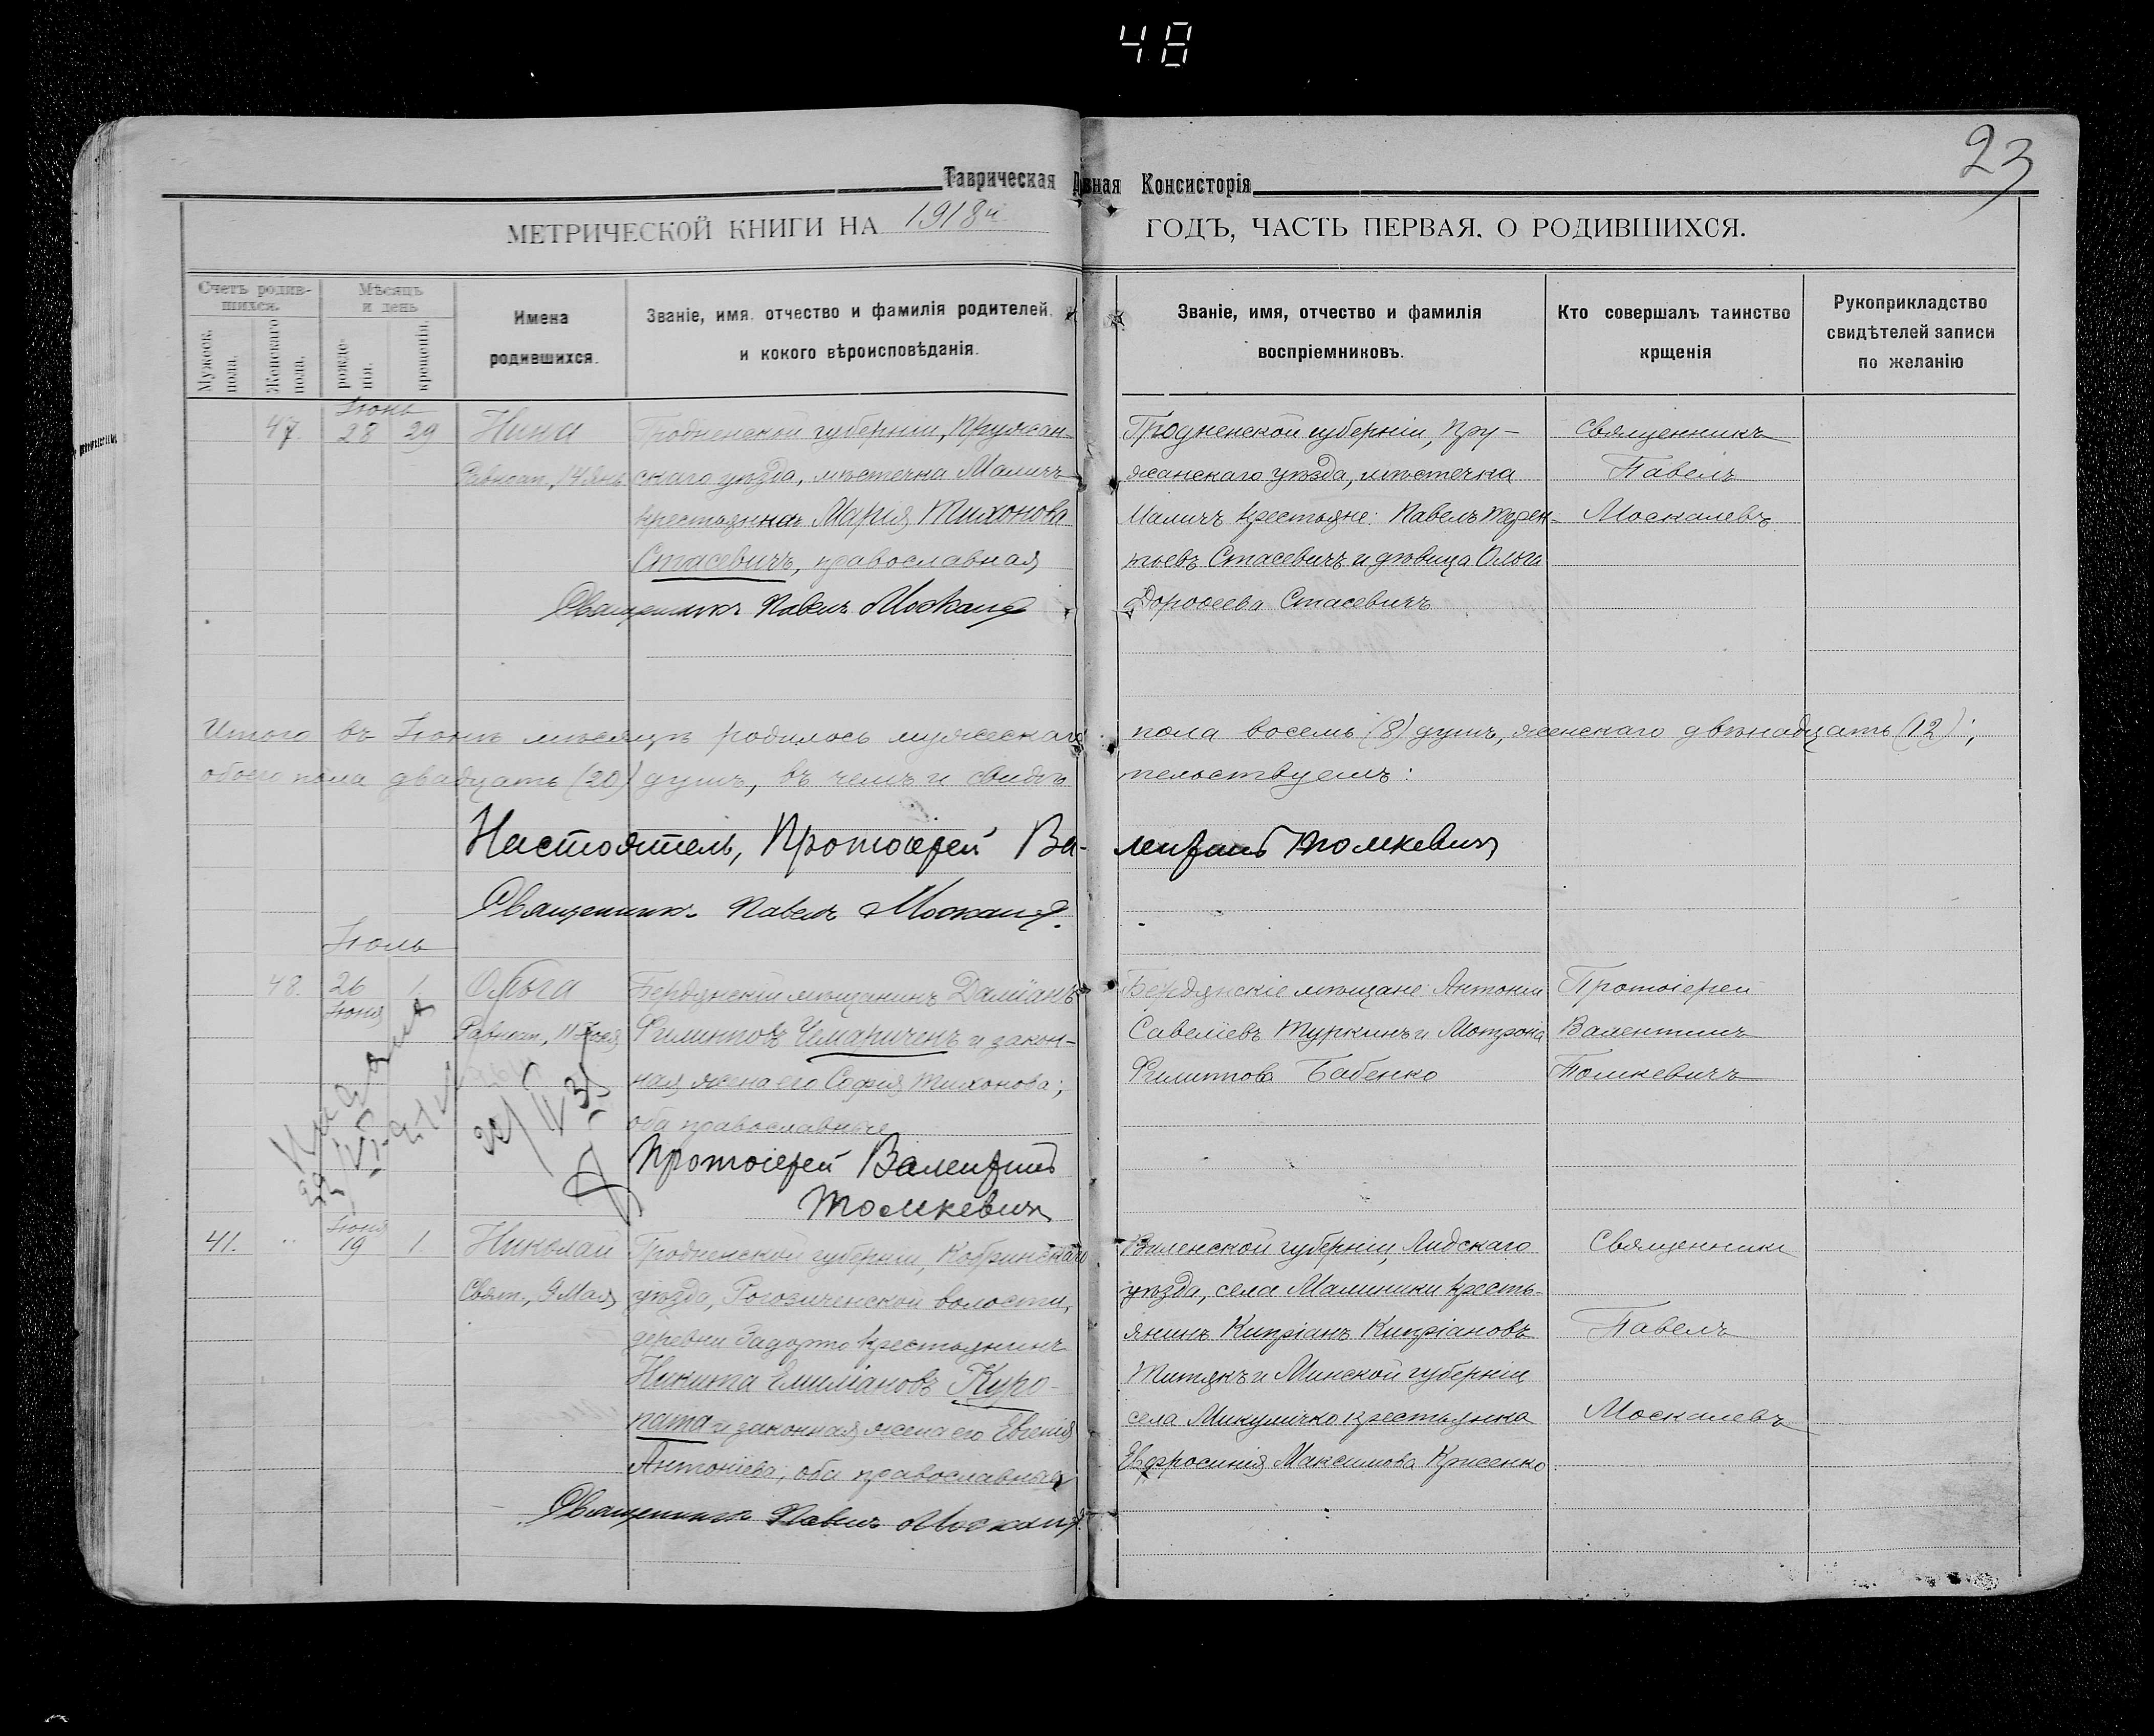 48
23
Таврическая Д вная Консисторія
МЕТРИЧЕСКОЙ КНИГИ НА 1918й ГОДЪ, ЧАСТЬ ПЕРВАЯ. О РОДИВШИХСЯ.
Счетъ родив-
шихся.
Мужеск.
пола.
Женскаго
пола.
Мѣсяцъ
и день
рожде-
нія.
крещенія.
Имена
родившихся.
Званіе, имя, отчество и фамилія родителей,
и кокого вѣроисповѣданія.
Званіе, имя, отчество и фамилія
воспріемниковъ.
Кто совершалъ таинство
крщенія
Рукоприкладство
свидѣтелей записи
по желанію
Іюнь
47 28 29 Нина
Равноап., 14 Янв.
Гродненской губерніи, Пружан-
скаго уѣзда, мѣстечка Маличъ
крестьянка Марія Тихонова
Стасевичъ, православная
Священникъ Павелъ Москал
Гродненской губерніи, Пру-
жанскаго уѣзда, мѣстечка
Маличъ крестьяне: Павелъ Терен-
тьевъ Стасевичъ и дѣвица Ольга
Дороѳеева Стасевичъ
Священникъ
Павелъ
Москалевъ
Итого въ Іюнѣ мѣсяцѣ родилось мужескаго пола восемь (8) душъ, женскаго двѣнадцать (12);
обоего пола двадцать (20) душъ, въ чемъ и свидѣтельствуемъ:
Настоятель, Протоіерей Ва-лентинъ Томкевичъ
Священникъ Павелъ Москал
Іюль
48. 26 1. Ольга
Іюня
Равноап., 11 Іюля
Бердянскій мѣщанинъ Даміанъ
Филипповъ Чемариченъ и закон-
ная жена его Софія Тихонова;
оба православные
Протоіерей Валентинъ
Томкевичъ
22/IV 35
Бердянскіе мѣщане: Антоній
Савеліевъ Туркинъ и Мотрона
Филиппова Бабенко
Протоіерей
Валентинъ
Томкевичъ
Іюня
41. " 19 1 Николай
Свят., 9 Мая
Гродненской губерніи, Кобринскаго
уѣзда, Рогозиченской волости,
деревни крестьянинъ
Никита Емиліановъ Куро-
пата и законная жена его Евгенія
Антоніева; оба православные
Священникъ Павелъ Москал
Виленской губерніи, Лидскаго
уѣзда, села Малишики кресть-
янинъ Кипріанъ Кипріановъ
Титякъ и Минской губерніи
села Микуличко крестьянка
Евфросинія Максимова Крисенко
Священникъ
Павелъ
Москалевъ